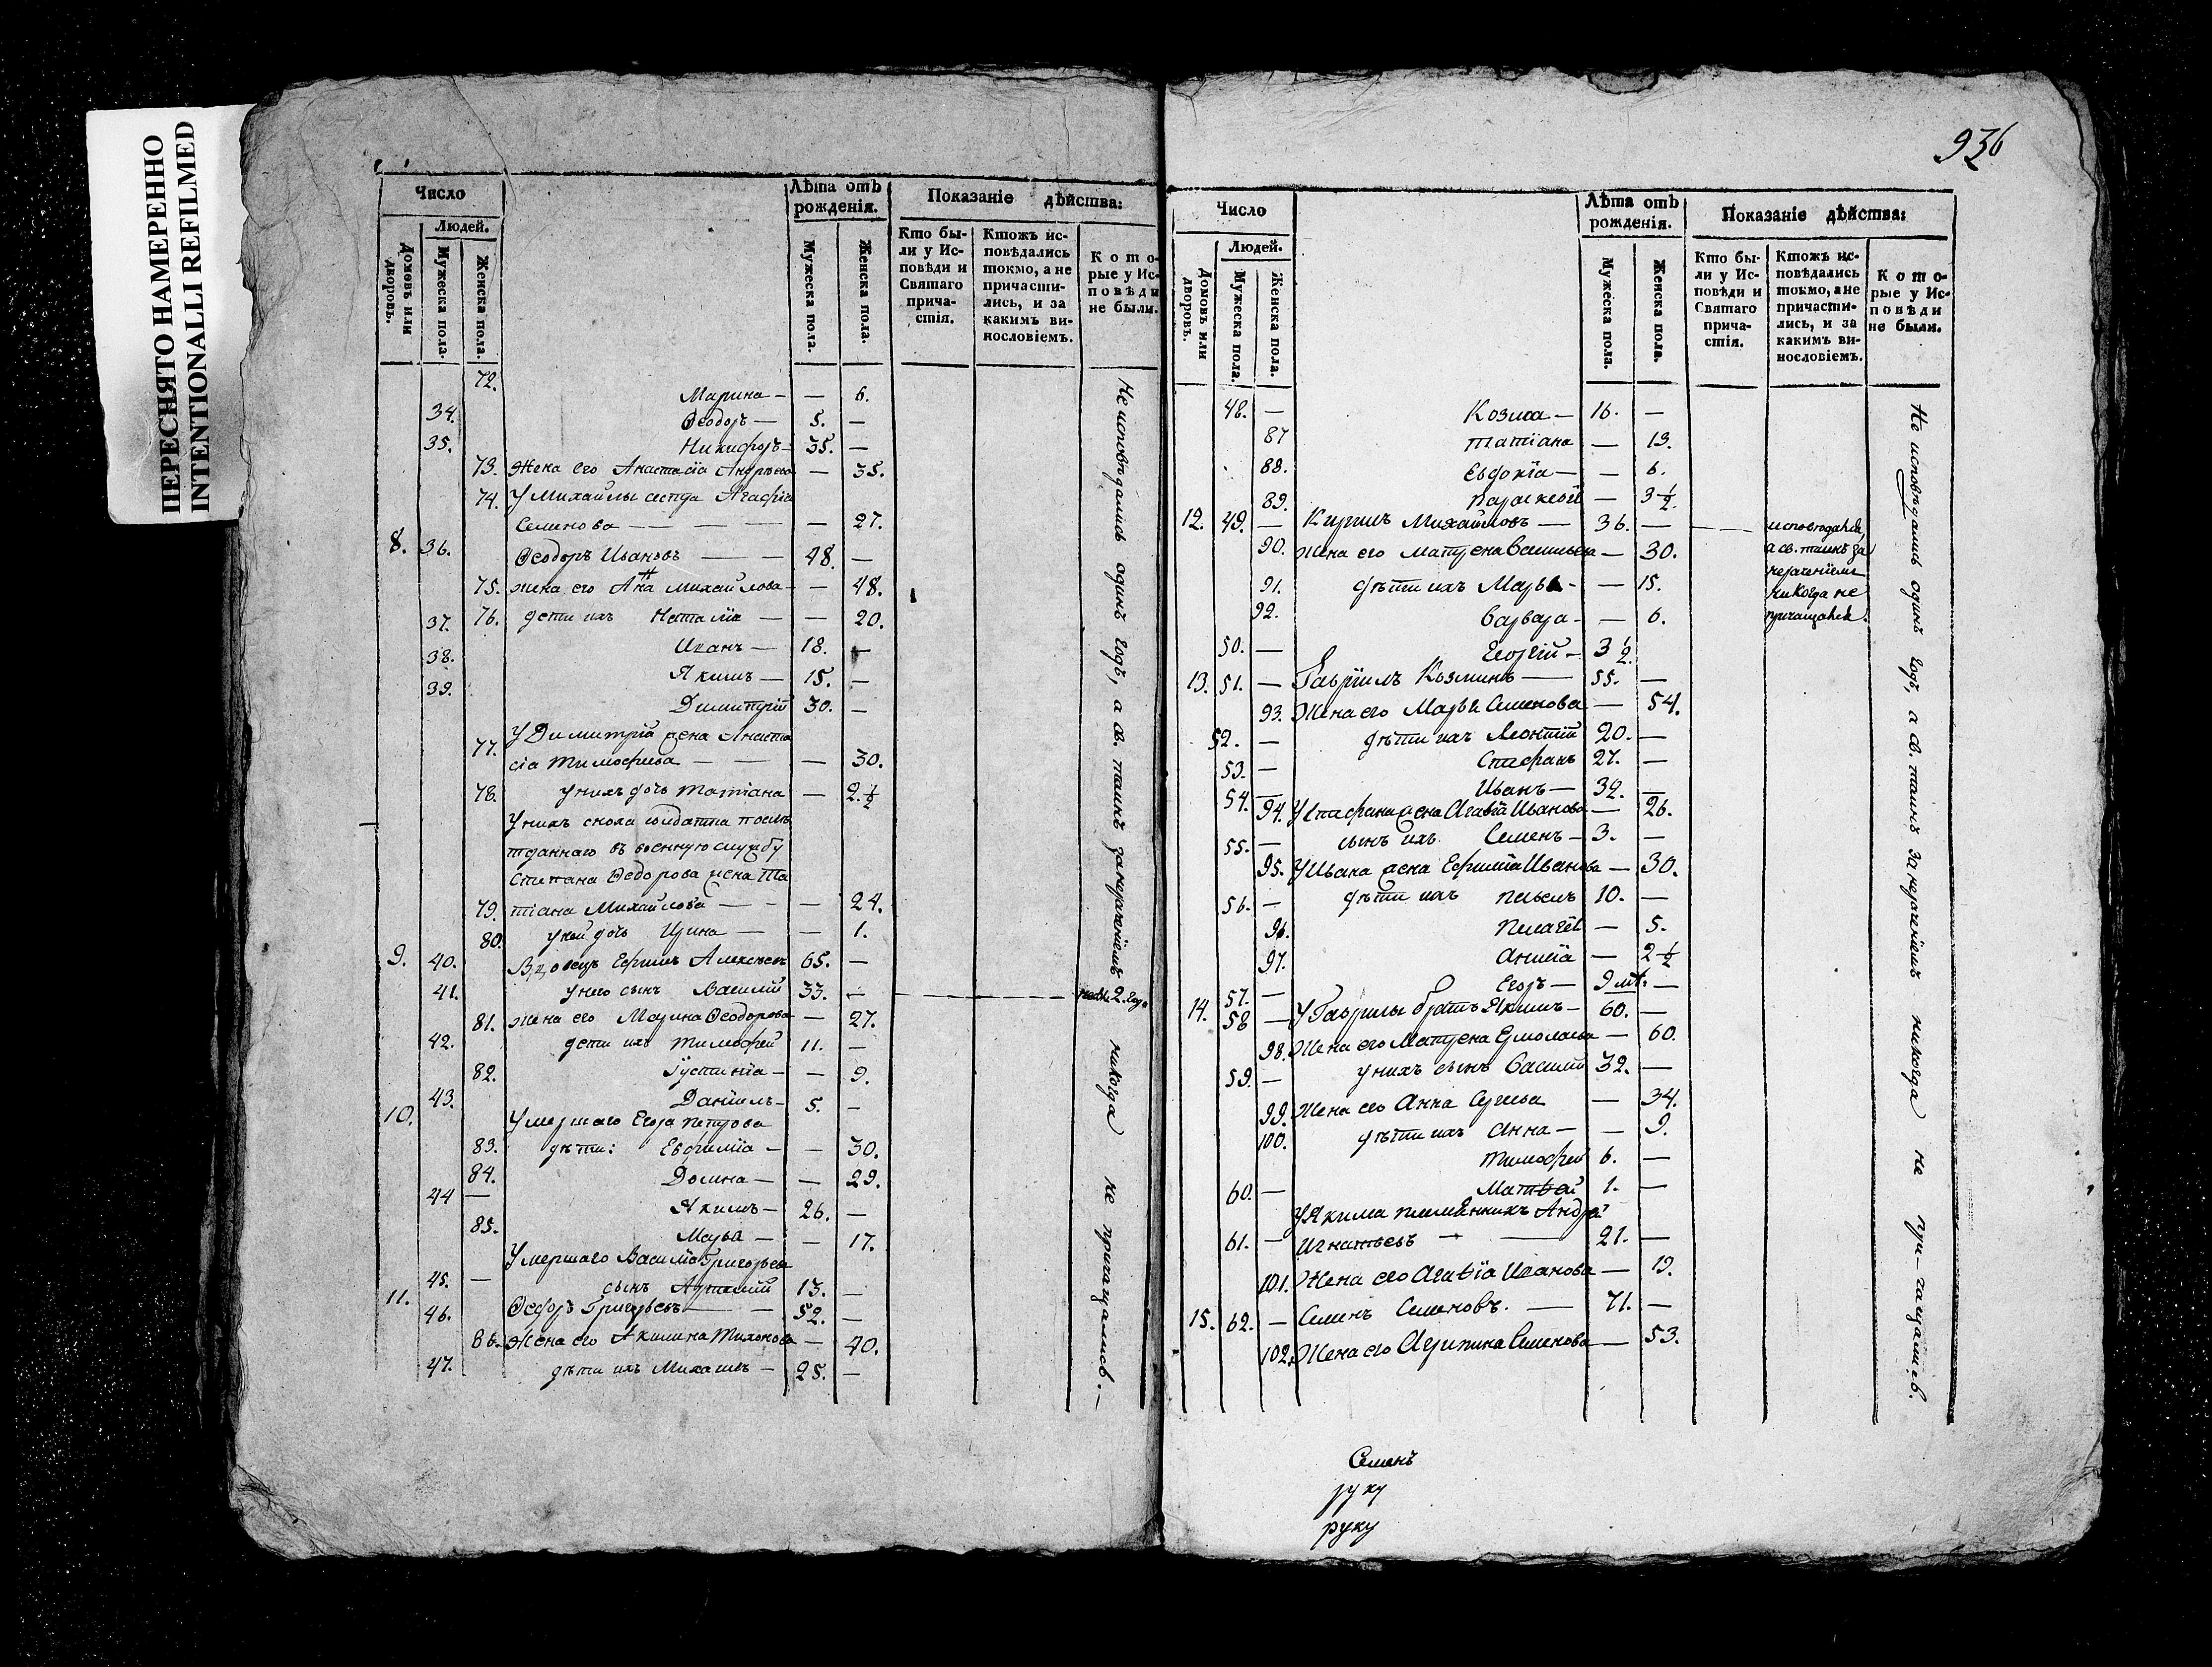 ПЕРЕСНЯТО НАМЕРЕННО
INTENTIONALLI REFILMED
Число
Людей.
Домовъ или дворовъ.
Мужеска пола.
Женска пола.
Лѣта отъ рожденія.
Мужеска пола.
Женска пола.
Показаніе дѣйства:
Кто были у Исповѣди и Святаго причастія.
Ктожъ исповѣдались токмо, а не причастились, и за какимъ винословіемъ.
Которые у Исповѣди не были.
72. Марина — — 6.
34. Ѳеодоръ — 5. —
35. Никифоръ — 35. —
73. Жена его Анастасіа Андреева — 35.
74. У Михайлы сестра Агафіа
Семенова — — — — 27.
8. 36. Ѳеодоръ Ивановъ — — 48. —
75. жена его Анна Михайлова — — 48.
76. дети ихъ Наталіа — — 20.
37. Иванъ — 18. —
38. Якимъ — 15. —
39. Димитрій 30. —
У Димитріа жена Анаста
77. сіа Тимофеева — — — 30.
78. у нихъ дочь Татіана — 2 ½
У нихъ сноха солдатка
тданнаго въ военную службу
Степана Ѳедорова жена Та
79. тіана Михайлова — — — 24.
80. у ней дочь Ирина — — 1.
9. 40. Вдовецъ Ефимъ Алексеевъ 65. —
41. у него сынъ Василій 33. — 2. год.
81. жена его Марина Ѳеодорова — 27.
42. дети ихъ Тимофей 11. —
82. Іустиніа — — 9.
43. Даніилъ — 5. —
10. Умершаго Егора Петрова
83. дѣти: Евфиміа — — 30.
84. Домна — — 29.
44 — Якимъ — 26. —
85. Марья — — 17.
Умершаго Василіа Григорьева
45. — сынъ Артемій 13. —
11. 46. Ѳедоръ Григорьевъ — — 52. —
86. Жена его Акилина Тихонова — 40.
47. дѣти ихъ Михаилъ — 25. —
Не исповѣдались одинъ годъ, а св. таинъ за нераченіемъ никогда не причащались. —
936
Число
Людей.
Домовъ или дворовъ.
Мужеска пола.
Женска пола.
Лѣта отъ рожденія.
Мужеска пола.
Женска пола.
Показаніе дѣйства:
Кто были у Исповѣди и Святаго причастія.
Ктожъ исповѣдались токмо, а не причастились, и за какимъ винословіемъ.
Которые у Исповѣди не были.
48. — Козма — 16. —
87 Татіана — 13.
88. Евдокіа — — 6.
89. Параскевіа — 3 ½.
12. 49. — Кирилъ Михайловъ — 36. —
90. жена его Матрена Васильева — 30.
91. дѣти ихъ Марья — — 15.
92. Варвара — — 6.
исповедался,
а св. таинъ за
нераченіемъ
никогда не
причащался.
50. — Георгій — 3 ½.
13. 51. — Гавріилъ Козминъ — 55. —
93. Жена его Марья Семенова — 54.
52. — дѣти ихъ Леонтій 20. —
53. — Стефанъ 27. —
54. — Иванъ — 32. —
94. У Стефана жена Агафіа Иванова — 26.
55. — сынъ ихъ Семенъ — 3. —
95. У Ивана жена Ефиміа Иванова — 30.
56. — дѣти ихъ Павелъ 10. —
96. Пелагея — 5.
97. Анисіа — 2 ½
57. — Егоръ — 9 мц. —
14. 58 — У Гаврилы братъ Якимъ — 60. —
98. Жена его Матрена Ермолаева — 60.
59. — у нихъ сынъ Василій 32. —
99. Жена его Анна Сергеева — 34.
100. дѣти ихъ Анна — — 9.
Тимофей 6. —
60. — Матвей 1. —
У Якима племянникъ Андрей
61. — Игнатьевъ — — 21. —
101. Жена его Агафіа Иванова — 19.
15. 62. — Семенъ Семеновъ. — 71. —
102. Жена его Агрипина Семенова — 53.
Не исповѣдались одинъ годъ, а св. таинъ за нераченіемъ никогда не причащались.
Семенъ
руку
руку